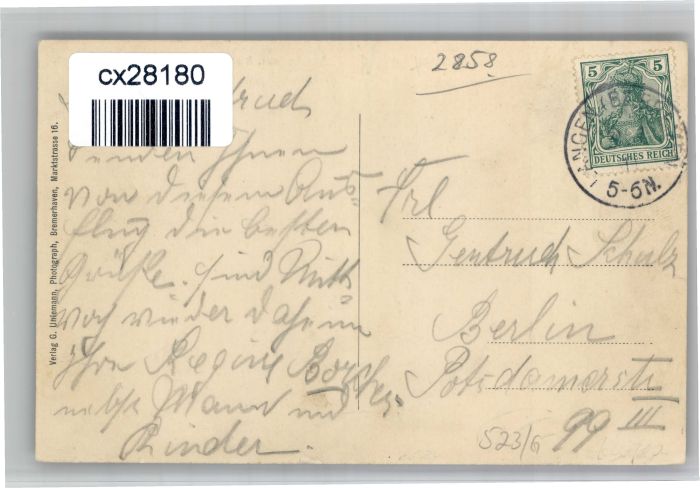 cx28180
2858
5
5
DEUTSCHES REICH
LANGEN
5-6N.
Verlag G. Untemann, Photograph, Bremerhaven, Marktstrasse 16.
senden Ihnen
von diesem Aus=
flug die besten
Grüße. sind Mitt=
woch wieder daheim
Ihre Regine
nebst Mann und
Kinder.
Frl
Gertrud Schulz
Berlin
Potsdamerstr
99 III
523/6